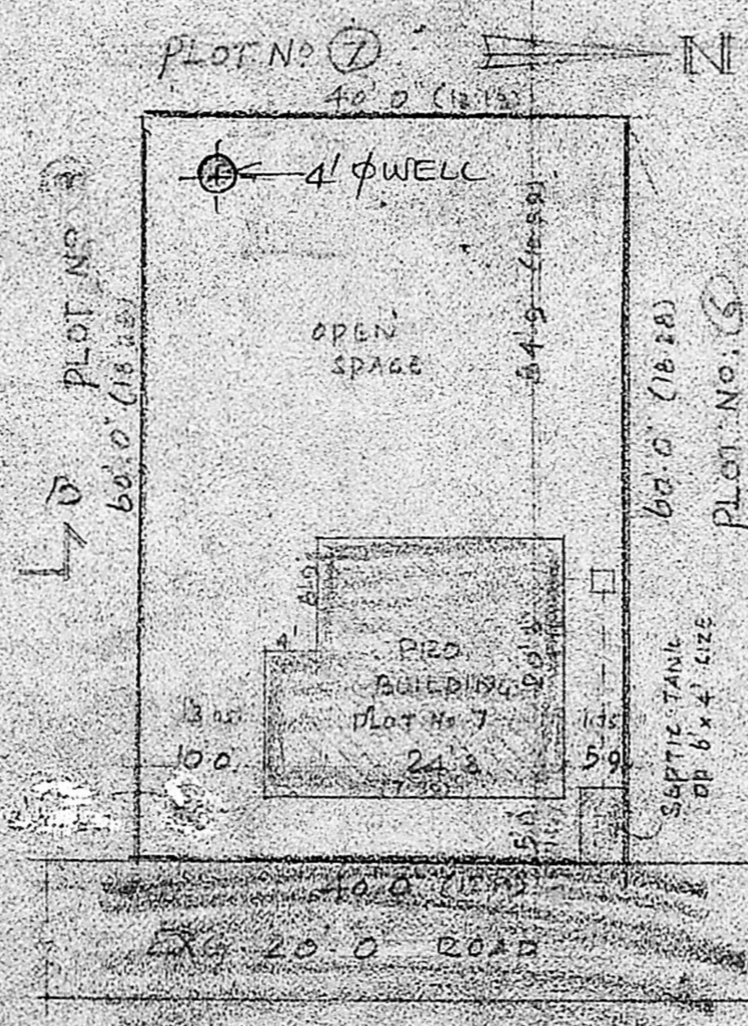 PLOT NO 7
N
40' 0" (12.19)
4' ϕ WELL
PLOT NO
60'.0" (18.28)
OPEN
SPACE
34'.9
60'.0" (18.28)
PLOT NO: 6
8'.0"
4'
PRO
BUILDING
PLOT No 7
20'.3"
3.05
10 0
24'3
5 9
5'.0"
SEPTIC TANK
OP 6' x 4' SIZE
40' 0"
EXG 20'.0 ROAD